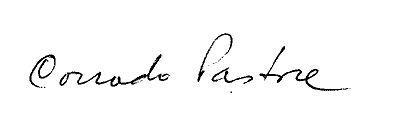 Corrado Pastore